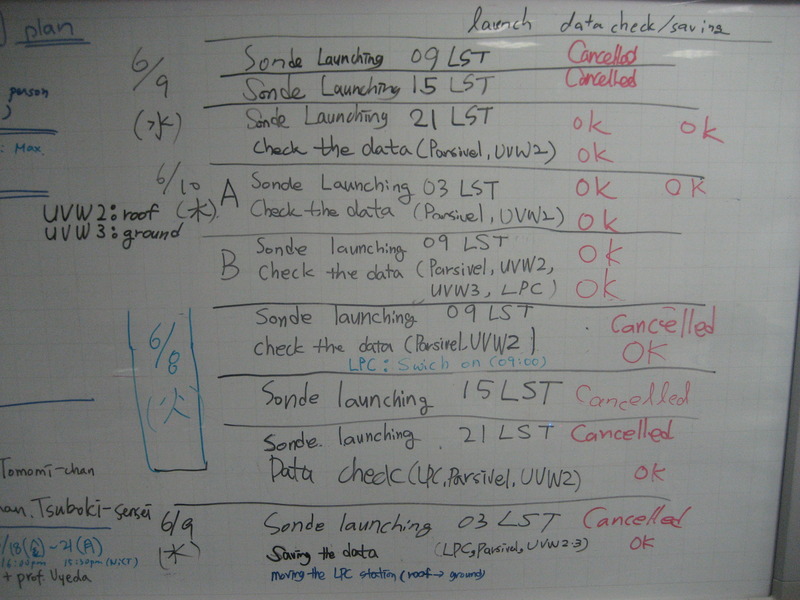 plan
launch data check/saving
6/9 Sonde Launching 09 LST Cancelled
Sonde Launching 15 LST Cancelled
person
(水) Sonde Launching 21 LST ok ok
: Max.
check the data (Parsivel, UVW2) ok
6/10 A Sonde Launching 03 LST OK OK
UVW2: roof (木) Check the data (Parsivel, UVW2) OK
UVW3: ground
B Sonde launching 09 LST OK
Check the data (Parsivel, UVW2,
UVW3, LPC) OK
6/8 Sonde launching 09 LST Cancelled
check the data (Parsivel.UVW2) OK
LPC: Swich on (09:00)
(火) Sonde launching 15 LST Cancelled
Sonde. launching 21 LST Cancelled
Tomomi-chan Data check (LPC, Parsivel, UVW2) OK
Tsuboki-sensei
6/9 Sonde launching 03 LST Cancelled
(水) Saving the data (LPC, Parsivel, UVW2.3) OK
/18(金)-21(月)
+ prof. Uyeda moving the LPC station (roof→ground)